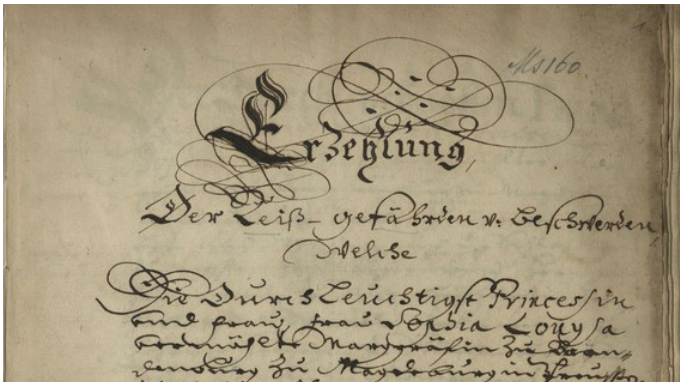 Ms 160.
Erzehlung,
Der Reiß-gefährden v: beschwerden,
Welche
Die Durchleuchtigst Princessin
und frau, frau Sophia Louysa
vermählte Marggräfin zu Bran„
denburg zu Magdeburg in Preußen